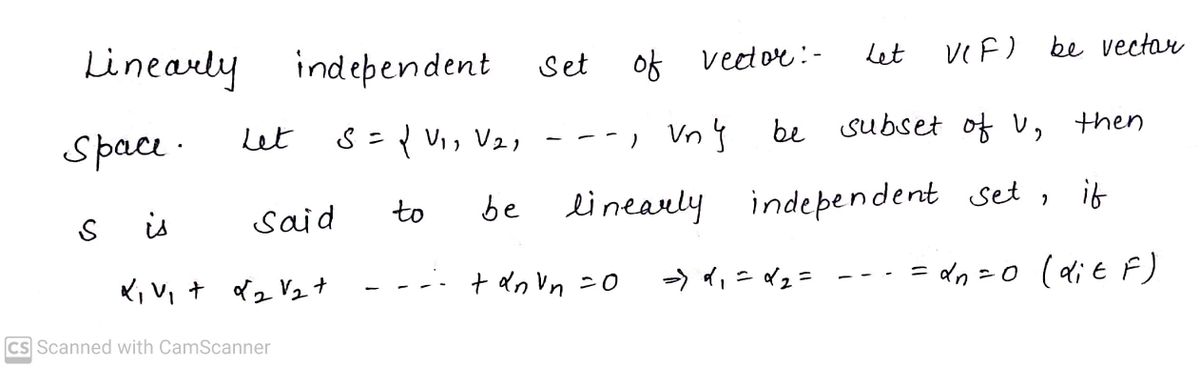 Linearly independent set of vector:- Let V(F) be vector
space. Let S = { V₁, V₂, ---, Vn } be subset of V, then
S is said to be linearly independent set, if
α₁V₁ + α₂V₂ + ----- + αnVn = 0 ⇒ α₁ = α₂ = --- = αn = 0 (αi ∈ F)
CS Scanned with CamScanner